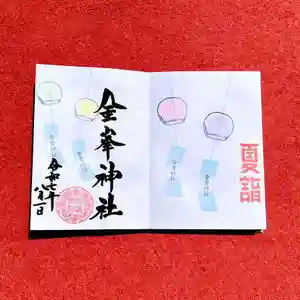 夏詣
金峯神社
令和七年
八月一日
金峯神社
金峯神社
金峯神社
金峯神社